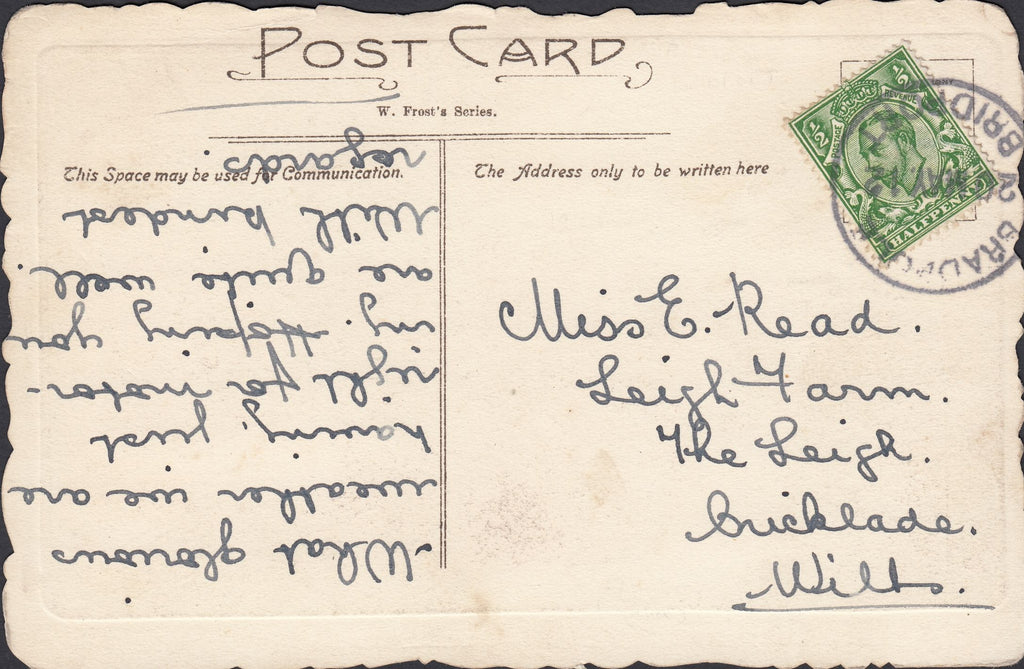 POST CARD
W. Frost's Series.
This Space may be used for Communication.
The Address only to be written here
What glorious
weather we are
having, just
right for motor-
ing. Hoping you
are quite well
With kindest
regards
Miss E. Read.
Leigh Farm.
The Leigh.
Cricklade.
Wilts.
POSTAGE
REVENUE
½
½
HALFPENNY
BRADFO
BRID